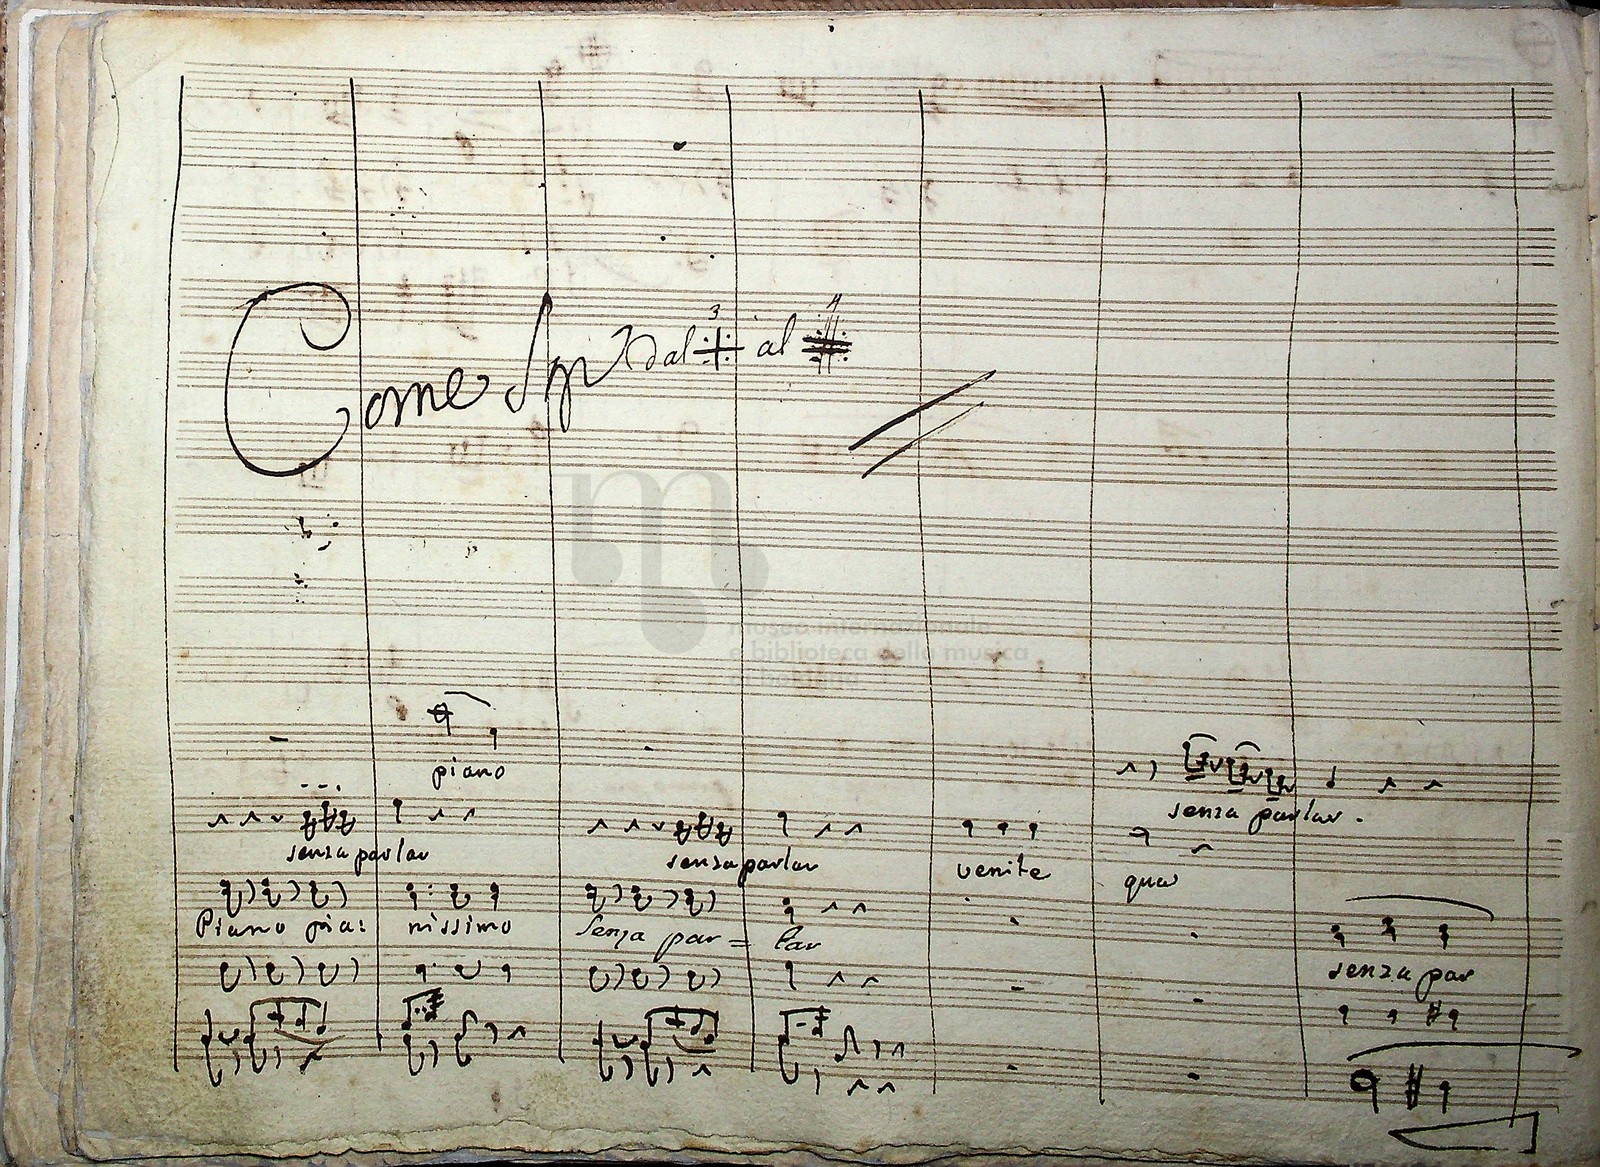 Come Sopra dal 3 al 4
museo internazionale
e biblioteca della musica
di bologna
piano
senza parlar.
senza parlar
senza parlar
venite
qua
Piano pia: nissimo Senza par= lar
senza par